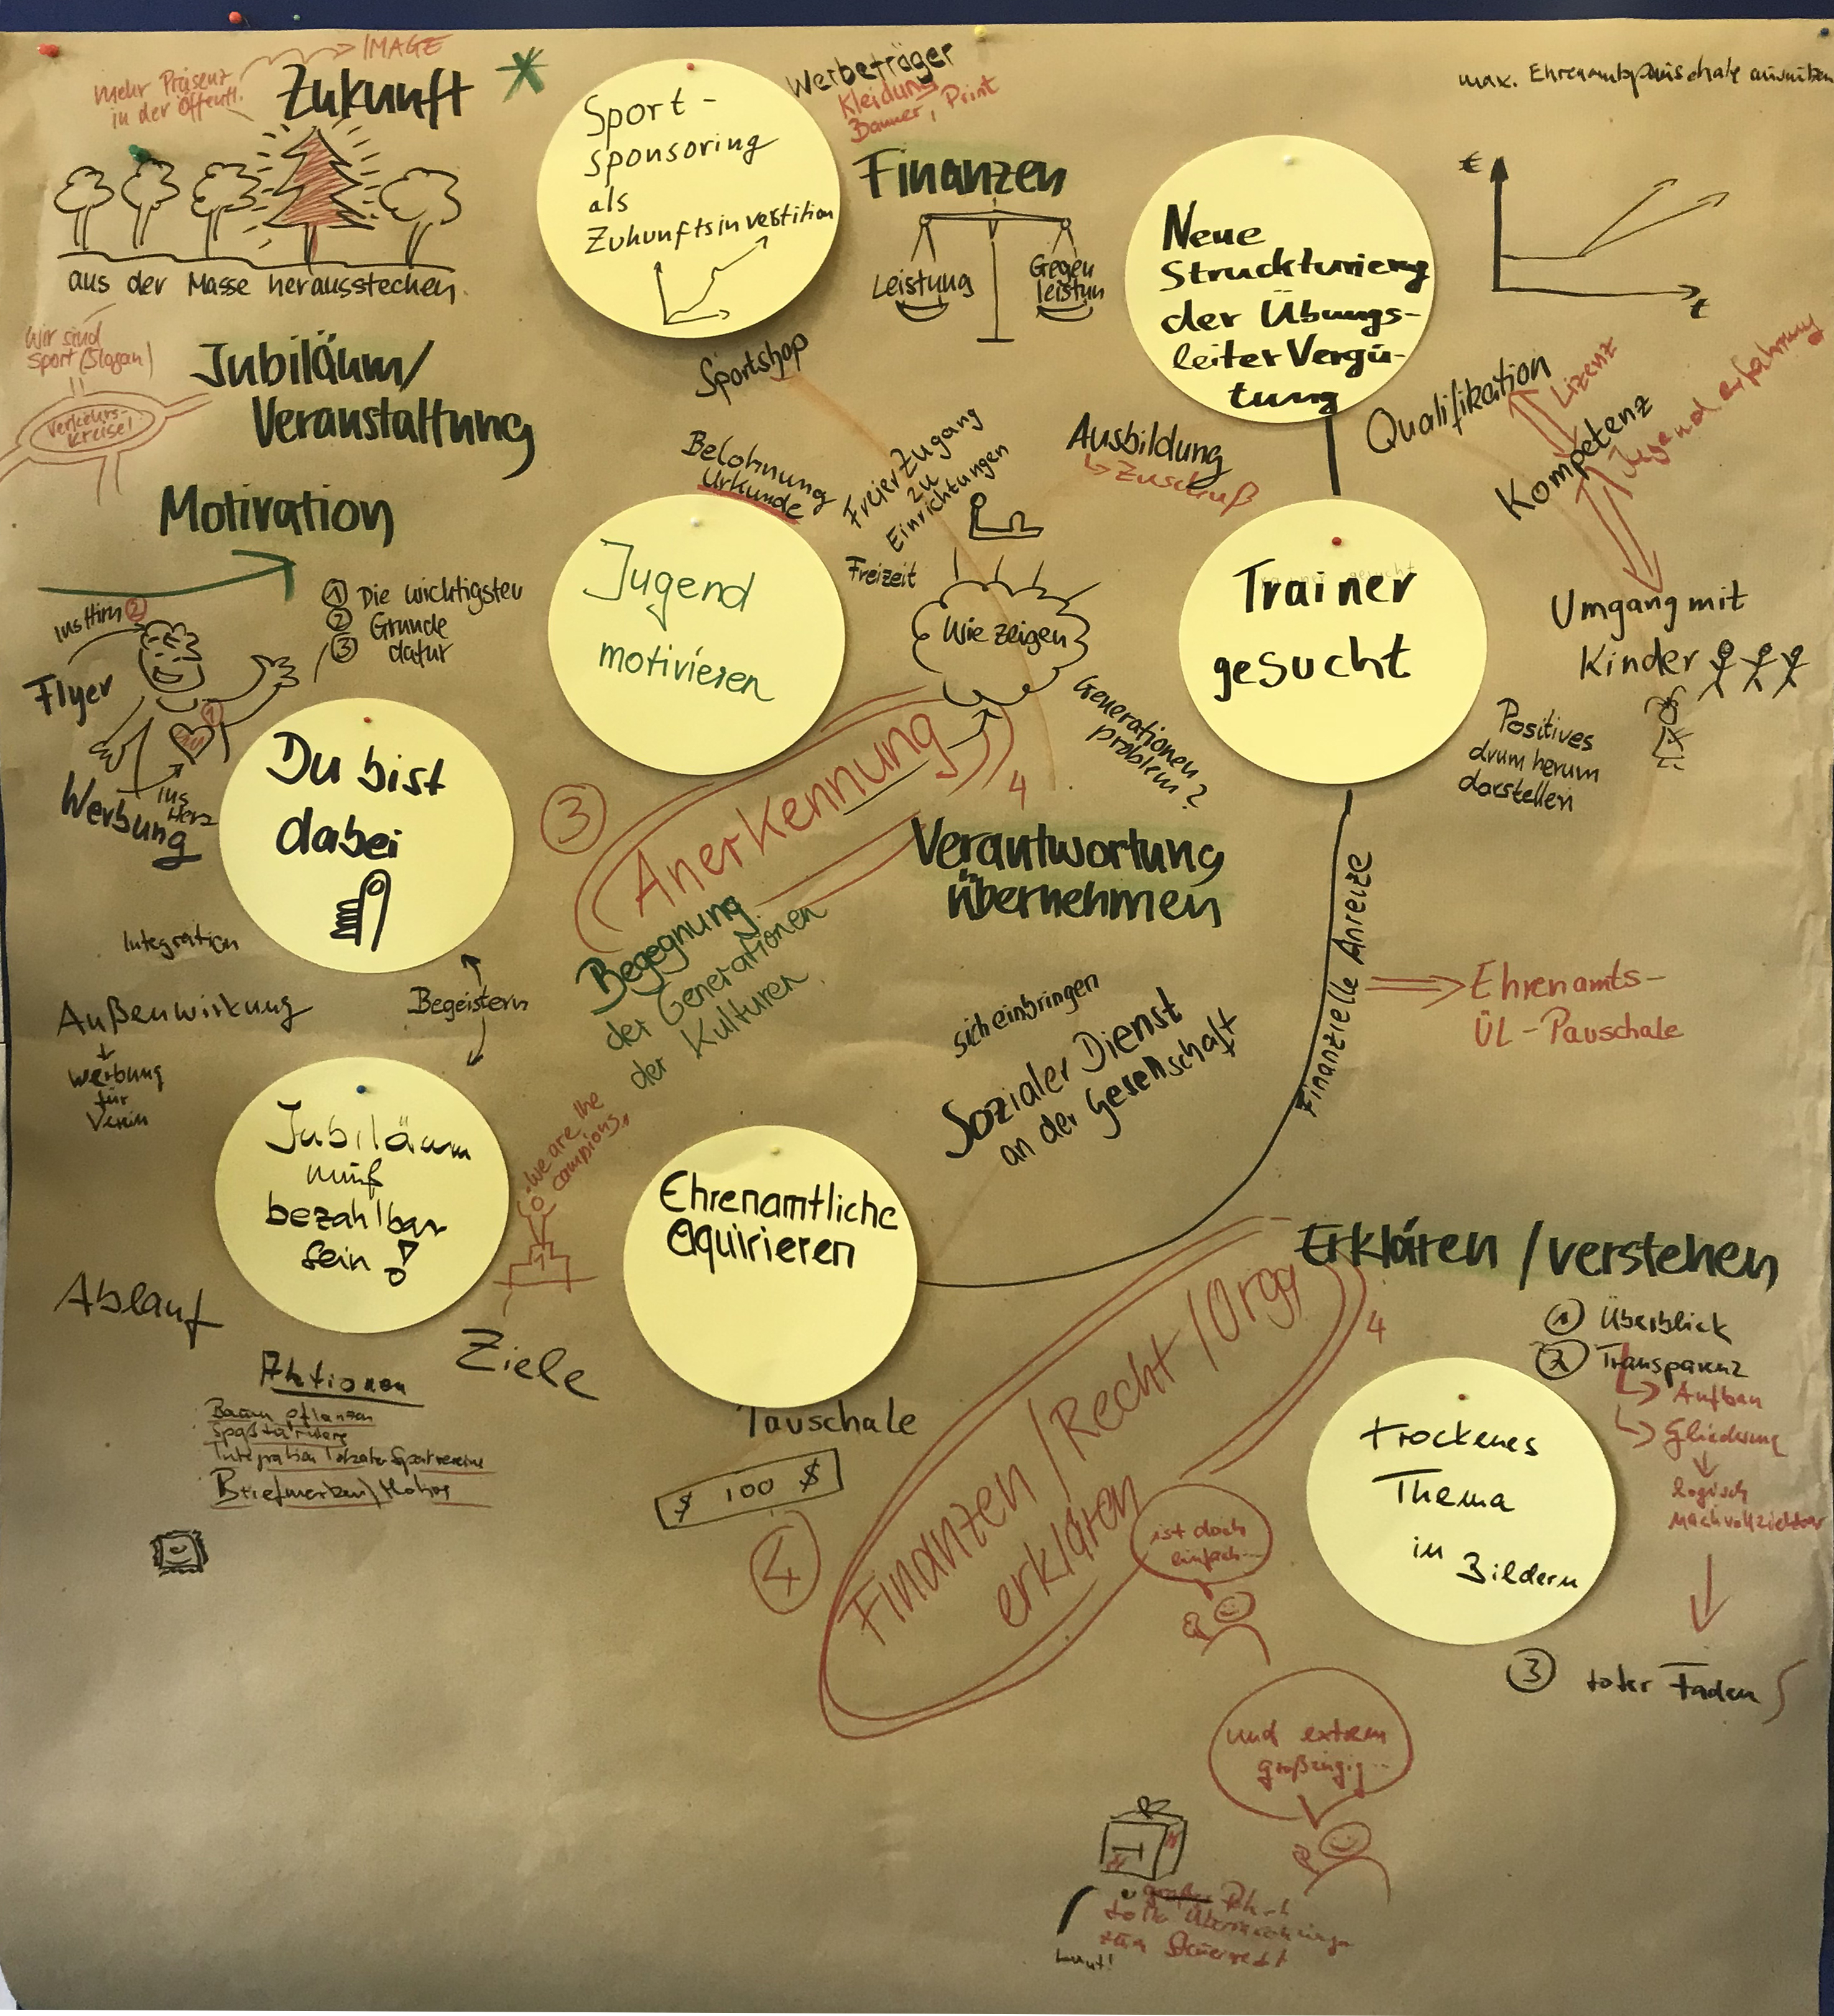 IMAGE
mehr Präsenz
in der Öffentl.
Zukunft
aus der Masse herausstechen.
Wir sind
Sport (Slogan)
Verkehrs-
kreisel
Jubiläum/
Veranstaltung
Motivation
Sport-
sponsoring
als
Zukunftsinvestition
Werbeträger
Kleidung
Banner, Print
Finanzen
Leistung
Gegen
leistun
max. Ehrenamtpauschale
€
t
Neue
Struckturierung
der Übungs-
leiter Vergü-
tung
Sportshop
Belohnung
Urkunde
Freier Zugang
zu
Einrichtungen
Freizeit
Ausbildung
Zuschuß
Qualifikation
Lizenz
Kompetenz
Jugenderfahrung
Umgang mit
Kinder
Positives
drum herum
darstellen
ins Hirn 2
1 Die wichtigsten
2 Gründe
3 dafür
Flyer
1
ins
Herz
Werbung
Jugend
motivieren
Wie zeigen
Generationen
problem?
Trainer
gesucht
Du bist
dabei
3
Anerkennung
4
Verantwortung
übernehmen
Begegnung
der Generationen
der Kulturen
Integration
Außenwirkung
Werbung
für
Verein
Begeistern
sich einbringen
Sozialer Dienst
an der Gesellschaft
Finanzielle Anreize
Ehrenamts-
ÜL-Pauschale
Jubiläum
muß
bezahlbar
sein!
we are the
campions
1
Ablauf
Ziele
Aktionen
Baum pflanzen
Integration lokaler Sportvereine
Briefmarken/
Ehrenamtliche
aquirieren
Pauschale
$ 100 $
4
Finanzen/Recht/Orga
erklären
4
Erklären/verstehen
1 Überblick
2 Transparenz
Aufbau
Gliederung
logisch
nachvollziehbar
3 roter Faden
trockenes
Thema
in Bildern
ist doch
einfach...
und extrem
großzügig...
zum Steuerrecht